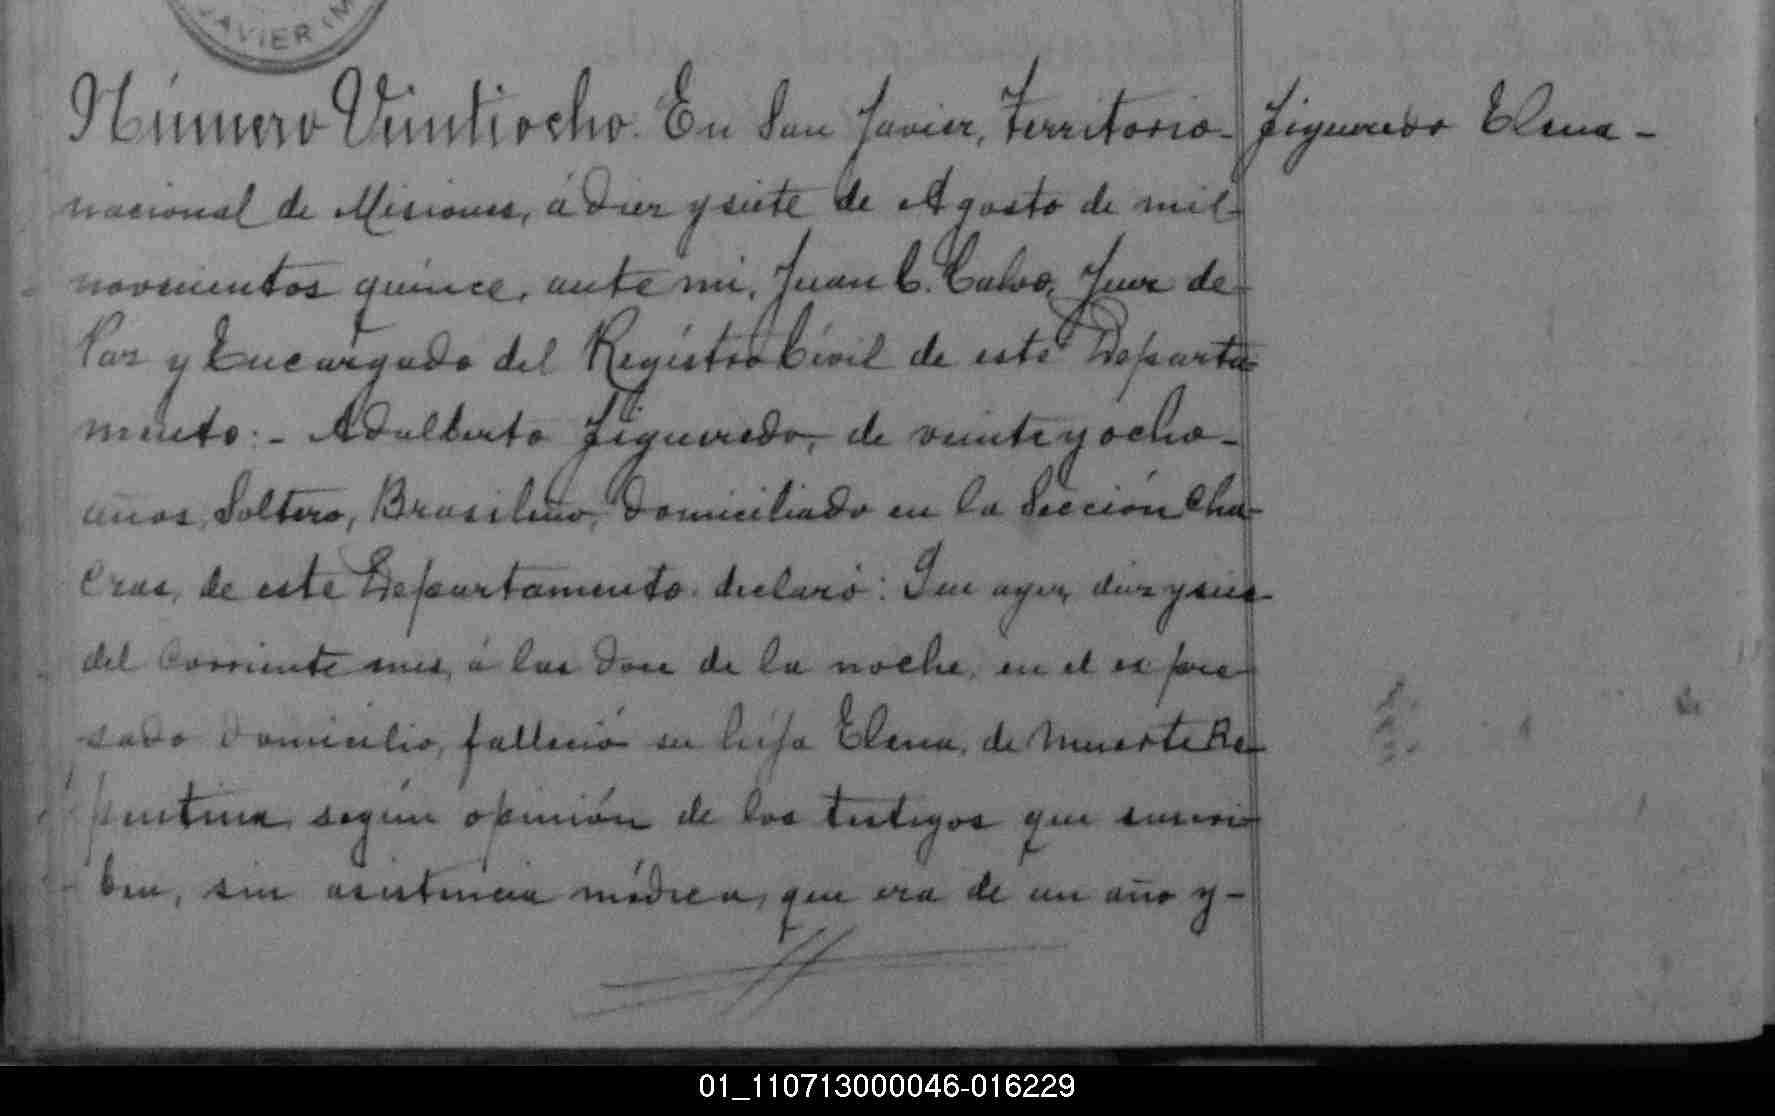 JAVIER (M
Número Veintiocho. En San Javier, Territorio-
Figueredo Elena-
nacional de Misiones, á diez y siete de Agosto de mil-
novecientos quince, ante mi, Juan C. Calvo, Juez de-
Paz y Encargado del Registro Civil de este Departa-
mento:- Adalberto Figueredo, de veinte y ocho-
años, Soltero, Brasileño, domiciliado en la Sección Cha-
cras, de este Departamento declaró: Que ayer,
del corriente mes, á las doce de la noche, en el expre-
sado domicilio, falleció su hija Elena, de Muerte Re-
pentina, según opinión de los testigos que suscri-
ben, sin asistencia médica, que era de un año y-
01_110713000046-016229